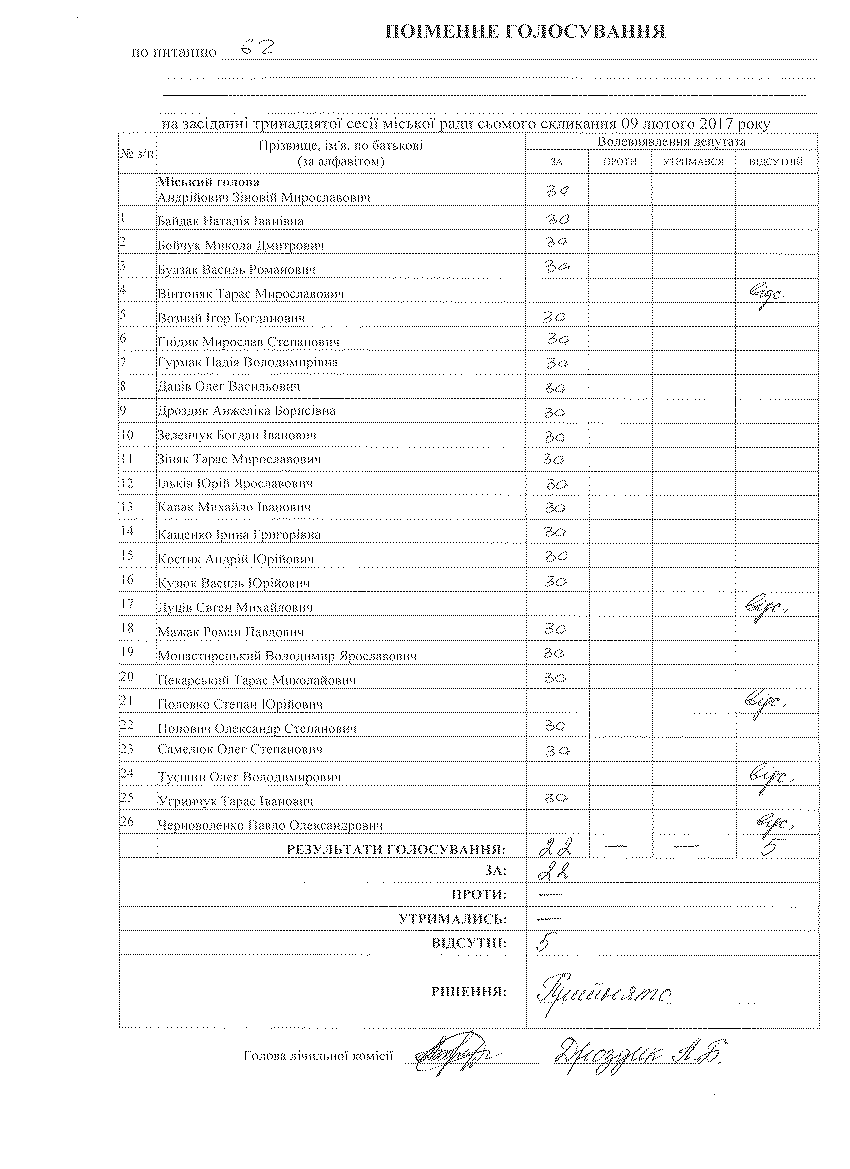 ПОІМЕННЕ ГОЛОСУВАННЯ
по питанню 62
на засіданні тринадцятої сесії міської ради сьомого скликання 09 лютого 2017 року
№ з/п Прізвище, ім'я, по батькові (за алфавітом) Волевиявлення депутата
ЗА ПРОТИ УТРИМАВСЯ ВІДСУТНІЙ
Міський голова
Андрійович Зіновій Мирославович за
1 Байдак Наталія Іванівна за
2 Бойчук Микола Дмитрович за
3 Будзак Василь Романович за
4 Вінтоняк Тарас Мирославович відс.
5 Возний Ігор Богданович за
6 Гнідик Мирослав Степанович за
7 Гурмак Надія Володимирівна за
8 Даців Олег Васильович за
9 Дроздик Анжеліка Борисівна за
10 Зеленчук Богдан Іванович за
11 Зіняк Тарас Мирославович за
12 Ільків Юрій Ярославович за
13 Капак Михайло Іванович за
14 Кащенко Ірина Григорівна за
15 Костик Андрій Юрійович за
16 Кузюк Василь Юрійович за
17 Луців Євген Михайлович відс.
18 Мажак Роман Павлович за
19 Монастирецький Володимир Ярославович за
20 Пекарський Тарас Миколайович за
21 Половко Степан Юрійович відс.
22 Попович Олександр Степанович за
23 Самелюк Олег Степанович за
24 Тусяшн Олег Володимирович відс.
25 Угринчук Тарас Іванович за
26 Черноволенко Павло Олександрович відс.
РЕЗУЛЬТАТИ ГОЛОСУВАННЯ: 22 — — 5
ЗА: 22
ПРОТИ: —
УТРИМАЛИСЬ: —
ВІДСУТНІ: 5
РІШЕННЯ: Прийнято
Голова лічильної комісії Дроздик А.Б.